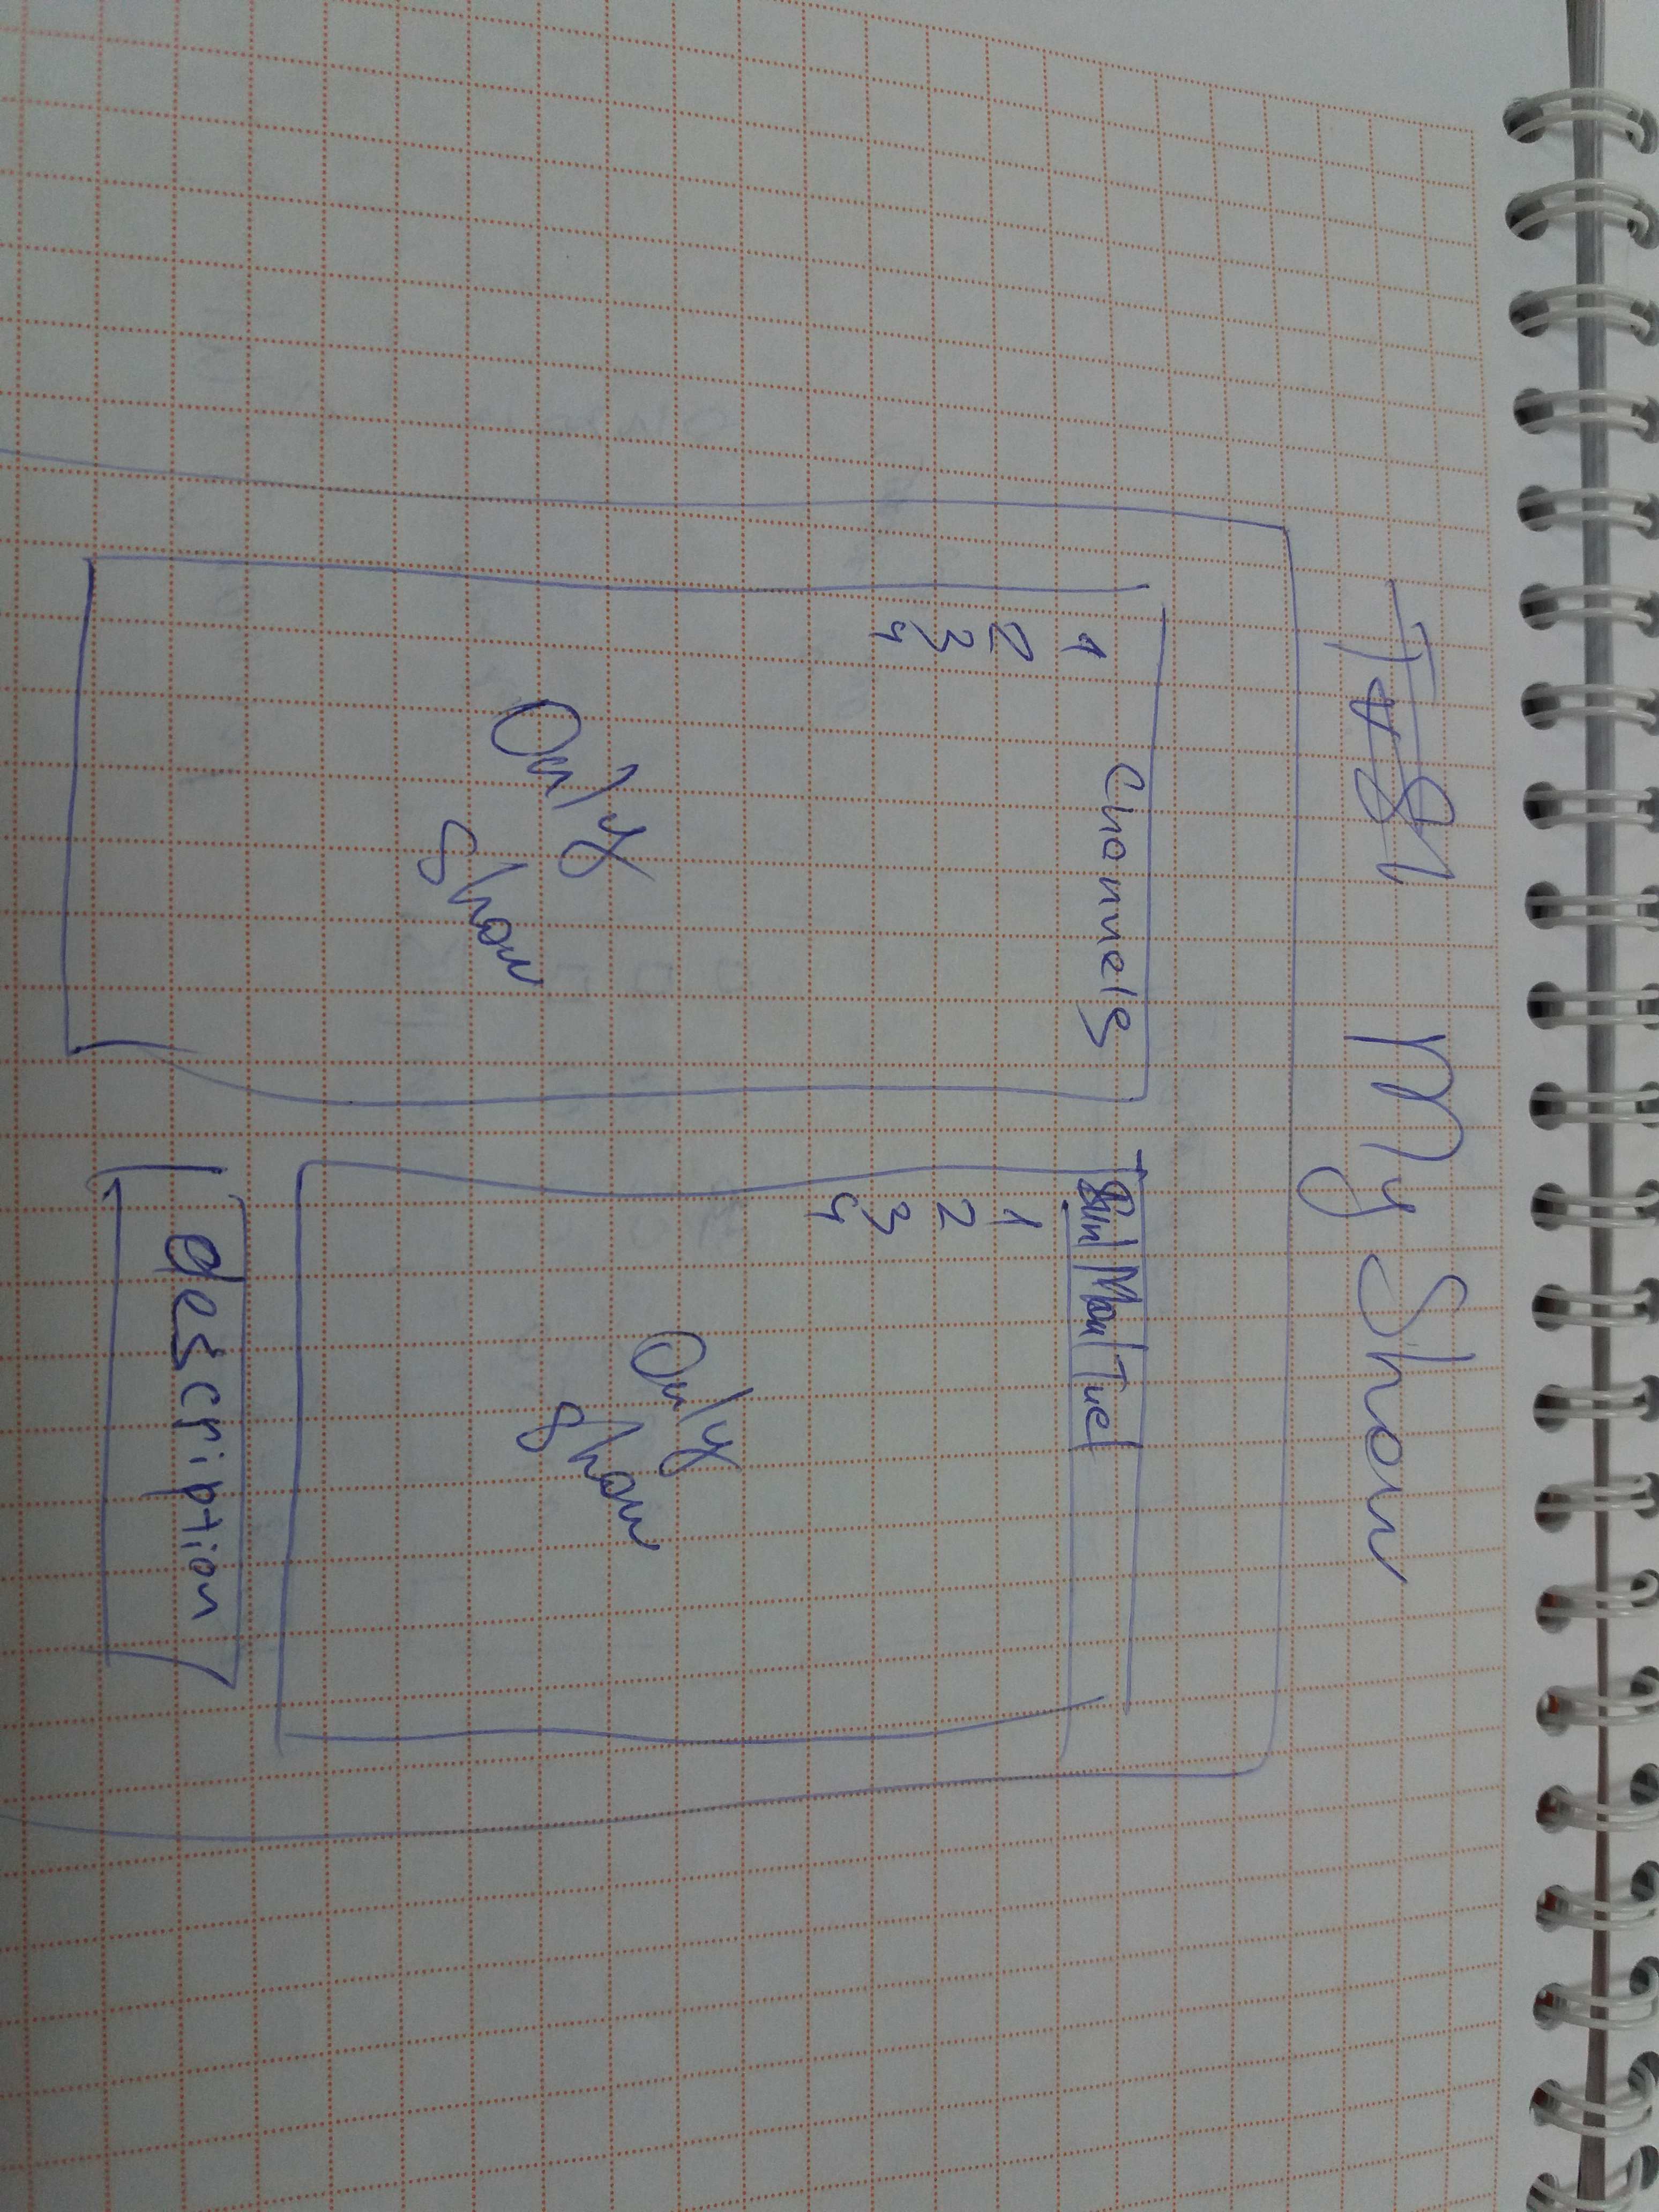 My Show
Channels
1
2
3
4
Only
show
Sun Mon Tue
1
2
3
4
Only
show
description